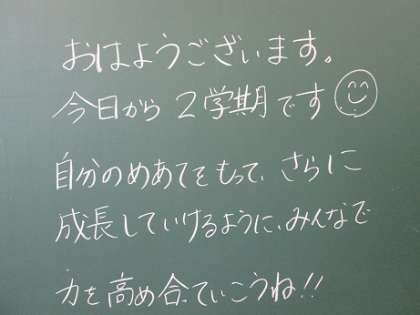 おはようございます。
今日から2学期です
自分のめあてをもって、さらに
成長していけるように、みんなで
力を高め合っていこうね!!